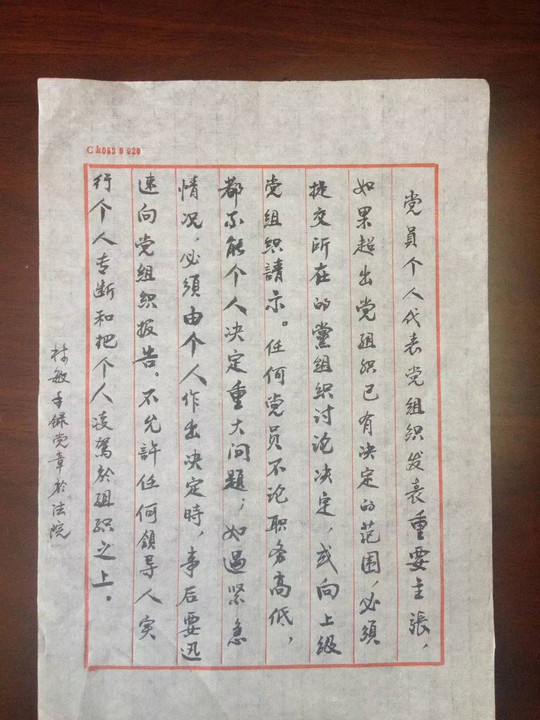 党员个人代表党组织发表重要主張，
如果超出党组织已有决定的范围，必须
提交所在的黨组织讨论决定，或向上级
党组织請示。任何党员不论职务高低，
都不能个人决定重大问题；如遇紧急
情况，必须由个人作出决定時，事后要迅
速向党组织报告。不允許任何领导人实
行个人专断和把个人凌驾於组织之上。
敏手録党章於法院